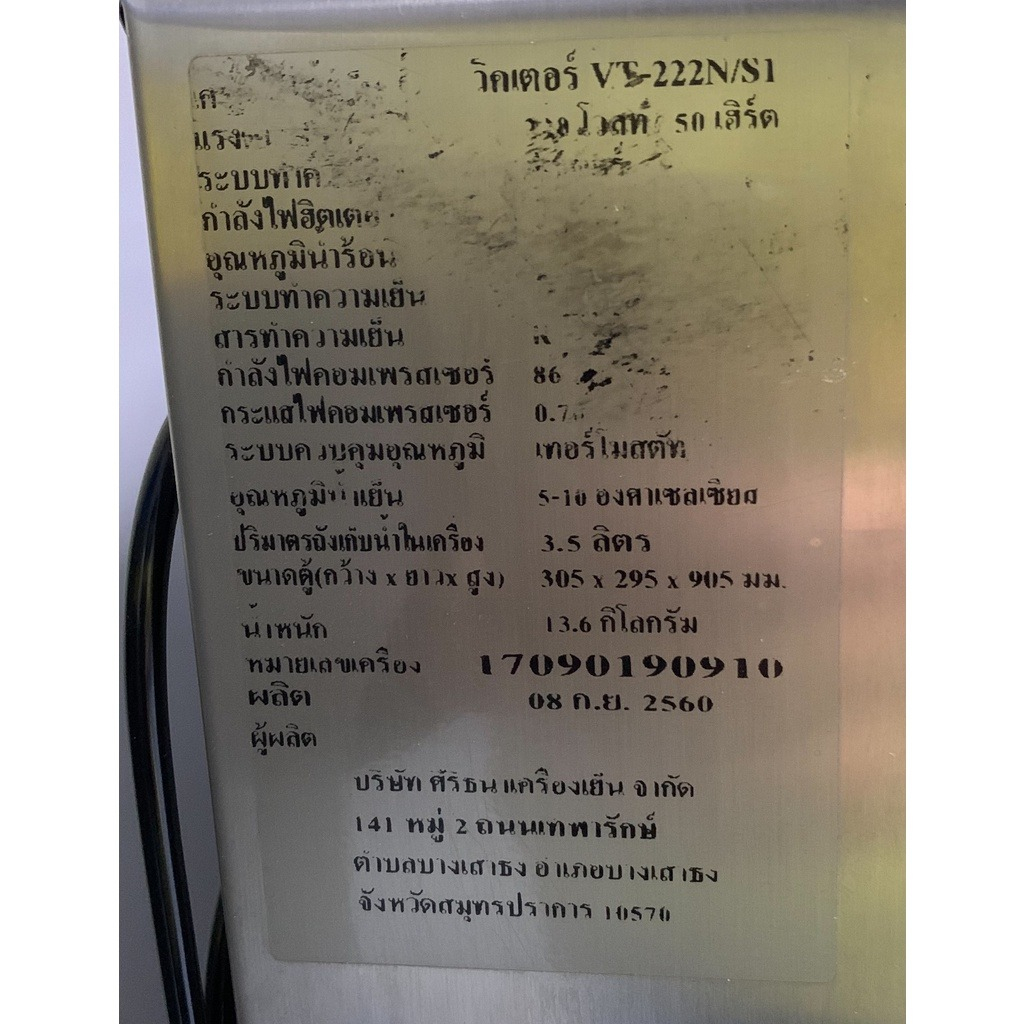 วิคเตอร์ VT-222N/S1
โวลท์ 50 เฮิร์ต
ระบบทำค
กำลังไฟฮิตเตอ
อุณหภูมิน้ำร้อน
ระบบทำความเย็น
สารทำความเย็น
กำลังไฟคอมเพรสเซอร์ 86
กระแสไฟคอมเพรสเซอร์
ระบบควบคุมอุณหภูมิ เทอร์โมสตัท
อุณหภูมิน้ำเย็น 5-10 องศาเซลเซียส
ปริมาตรถังเก็บน้ำในเครื่อง 3.5 ลิตร
ขนาดตู้(กว้าง x ยาวx สูง) 305 x 295 x 905 มม.
น้ำหนัก 13.6 กิโลกรัม
หมายเลขเครื่อง 17090190910
ผลิต 08 ก.ย. 2560
ผู้ผลิต
บริษัท ศิริธนเครื่องเย็น จำกัด
141 หมู่ 2 ถนนเทพารักษ์
ตำบลบางเสาธง อำเภอบางเสาธง
จังหวัดสมุทรปราการ 10570